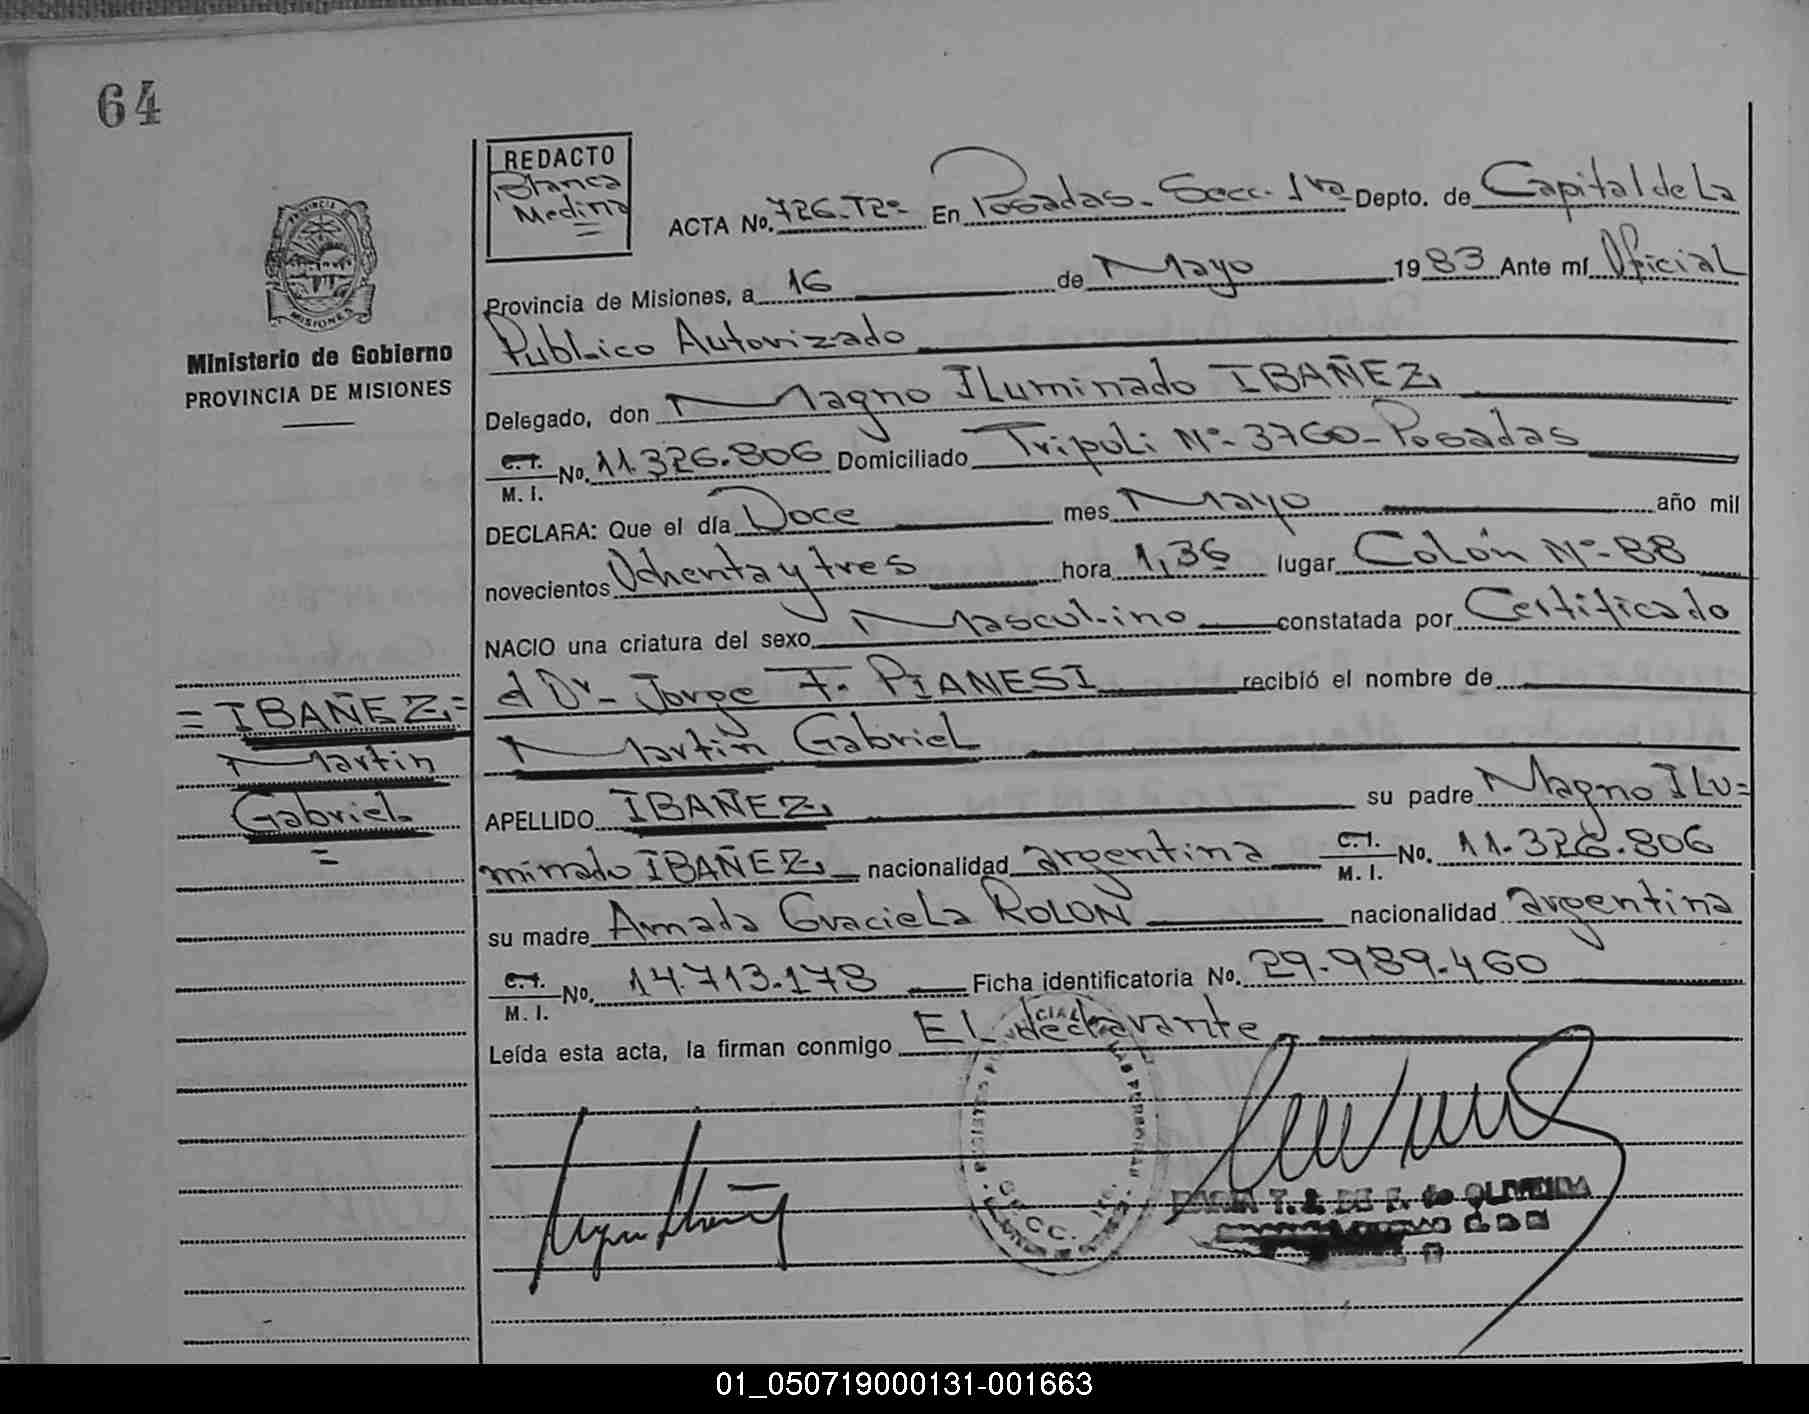 64
REDACTO
Blanca
Medina
ACTA No. 726-Tº2º En Posadas-Secc. 1ra Depto. de Capital de La
Provincia de Misiones, a 16 de Mayo 1983 Ante mí Oficial
Publico Autorizado
Delegado, don Magno Iluminado IBAÑEZ,
C.I.
M. I. No. 11.326.806 Domiciliado Tripoli Nº-3760-Posadas
DECLARA: Que el día Doce mes Mayo año mil
novecientos Ochenta y tres hora 1,36 lugar Colón Nº-88
NACIO una criatura del sexo Masculino constatada por Certificado
d Dr- Jorge F. PIANESI recibió el nombre de
Martin Gabriel
APELLIDO IBAÑEZ, su padre Magno ILu=
minado IBAÑEZ, nacionalidad argentina C.I.
M. I. No. 11.326.806
su madre Amada Graciela ROLON nacionalidad argentina
C.I.
M. I. No. 14.713.178 Ficha identificatoria No. 29.989.460
Leída esta acta, la firman conmigo El declarante,
PROVINCIA
MISIONES
Ministerio de Gobierno
PROVINCIA DE MISIONES
=IBAÑEZ,=
Martin
Gabriel.
=
DE F. de OLIVEIRA
01_050719000131-001663